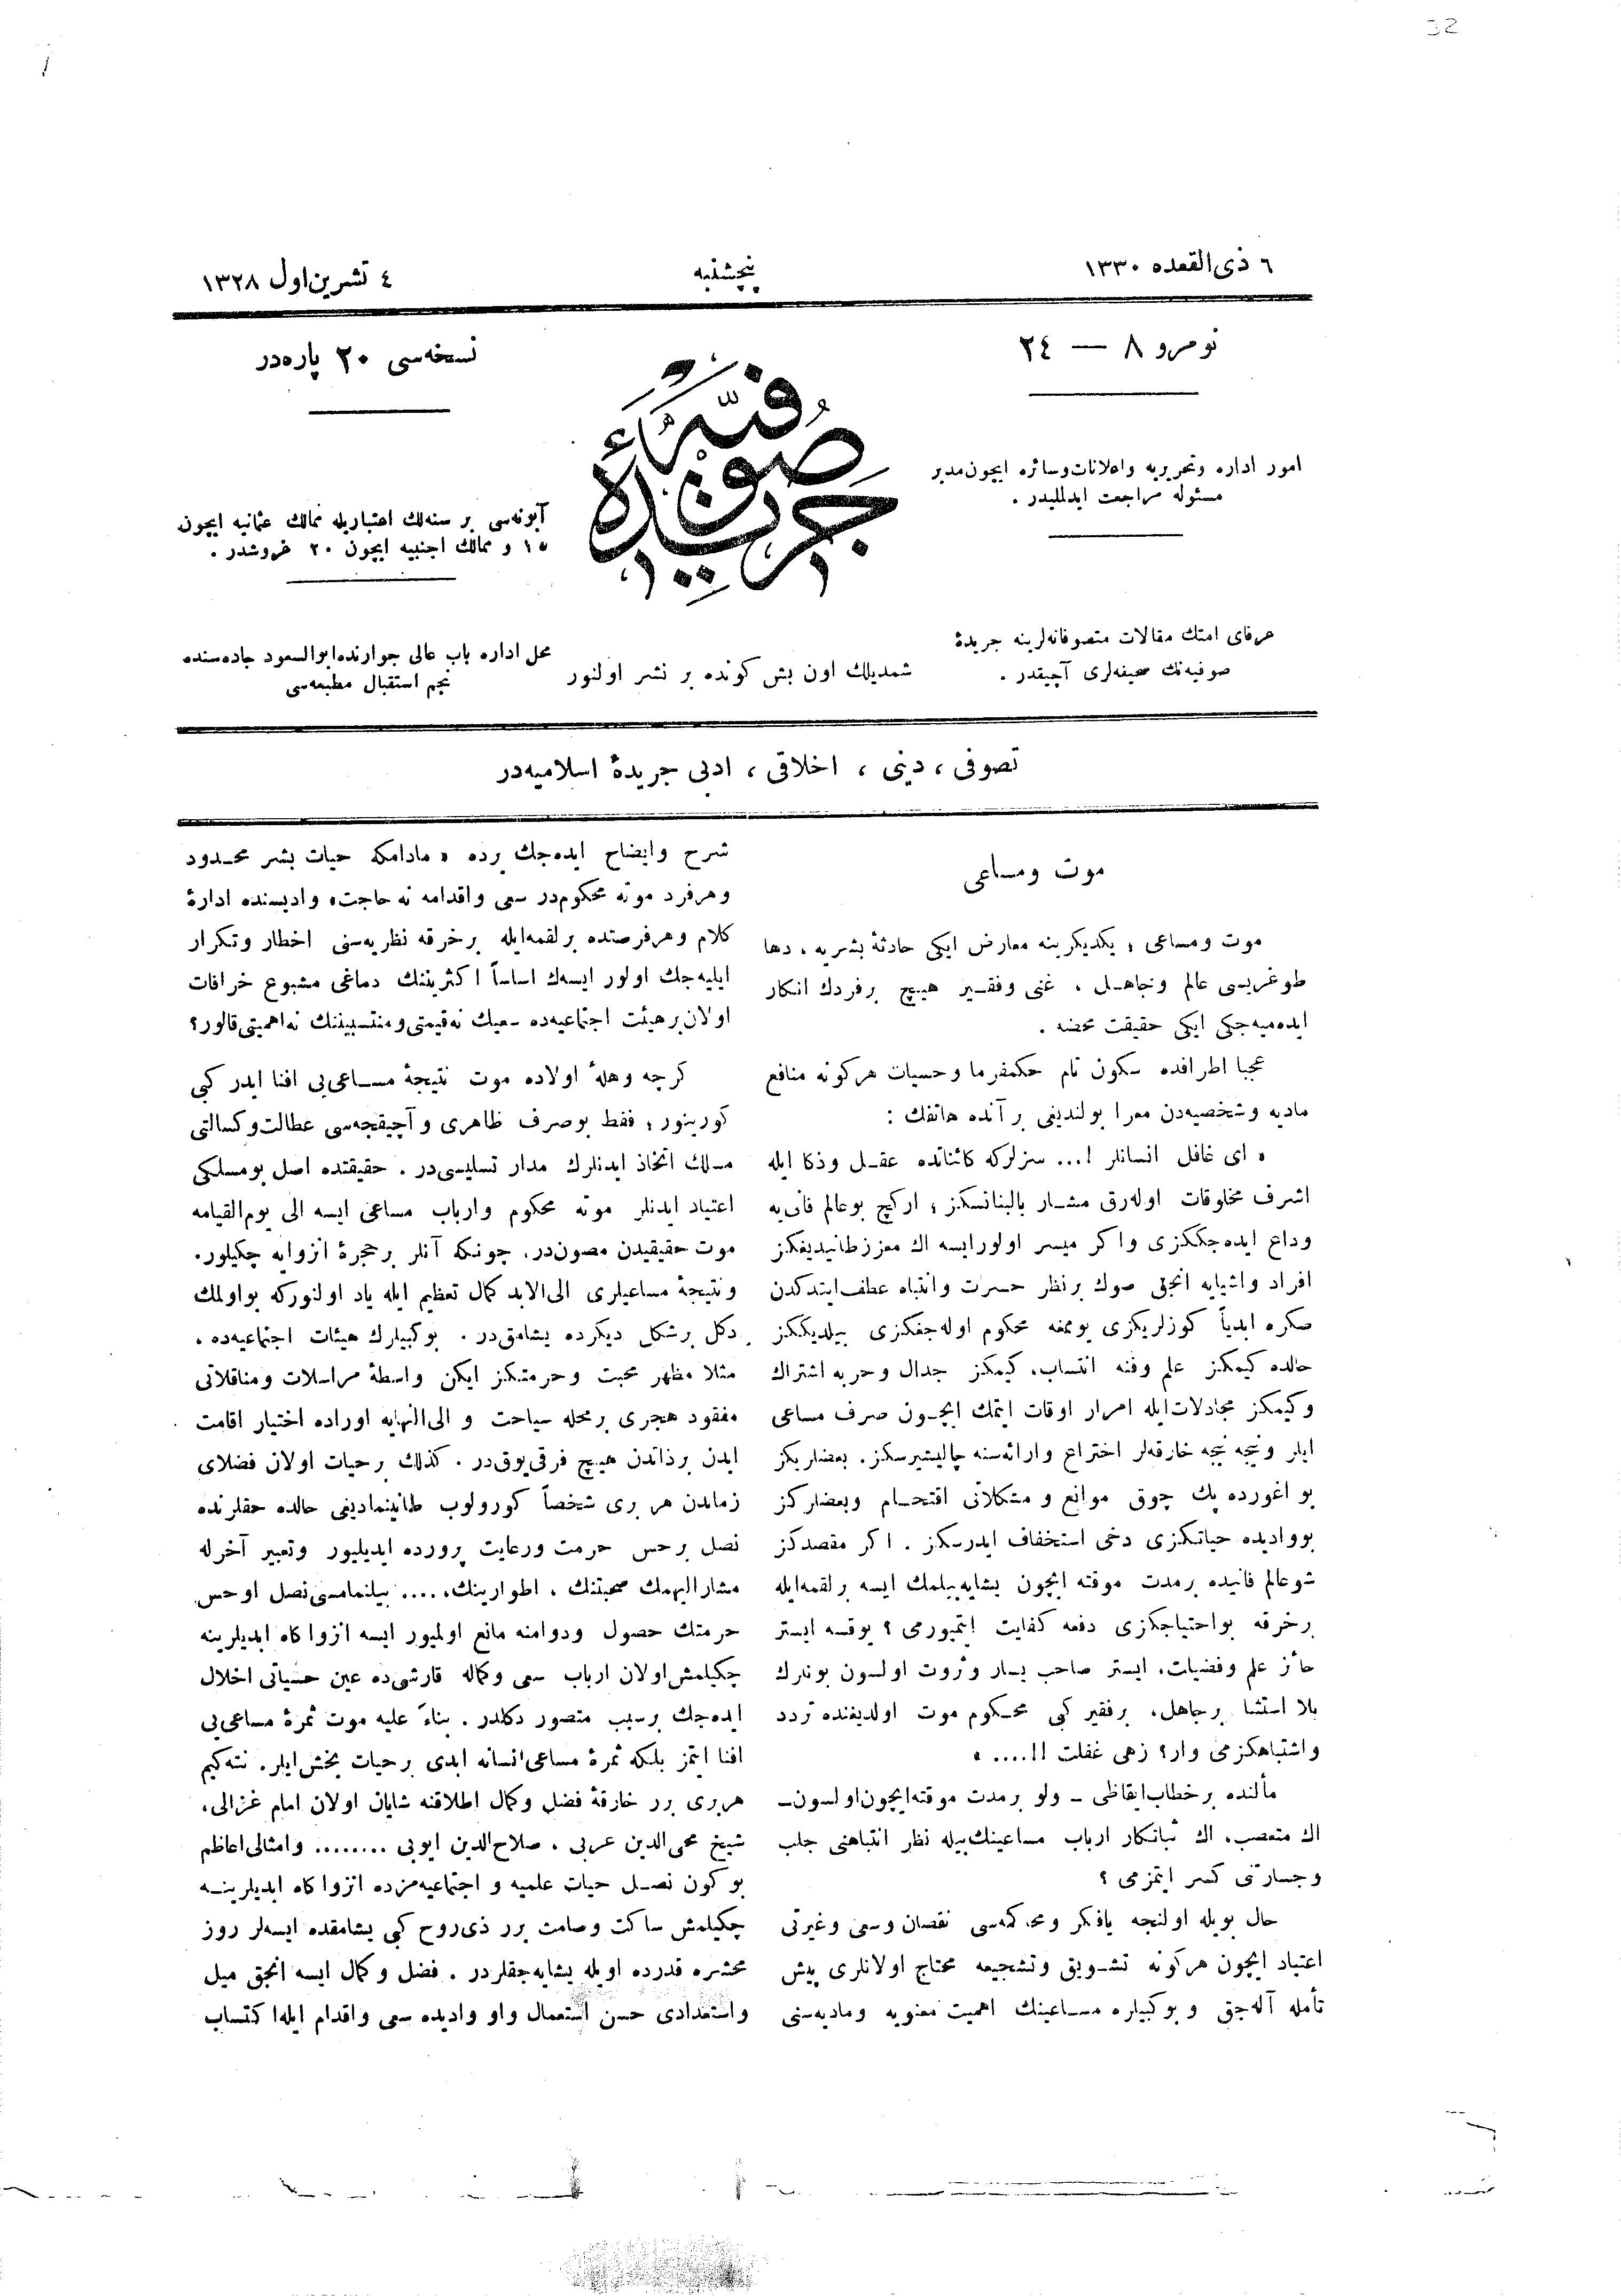 32
٦ ذی‌القعده ١٣٣٠
پنچشنبه
٤ تشرین‌اول ١٣٢٨
نومرو ٨ — ٢٤
نسخه‌سی ٢٠ پاره‌در
جریدهٔ صوفیه
امور اداره وتحریریه واعلانات‌وسائره ایچون‌مدیر
مسئوله مراجعت ایدلملیدر .
آبونه‌سی بر سنه‌لك اعتباریله ممالك عثمانیه ایچون
١٥ و ممالك اجنبیه ایچون ٢٠ غروشدر .
عرفای امتك مقالات متصوفانه‌لرینه جریدهٔ
صوفیه‌نك صحیفه‌لری آچیقدر .
شمدیلك اون بش كونده بر نشر اولنور
محل اداره باب عالی جوارنده‌ابوالسعود جاده‌سنده
نجم استقبال مطبعه‌سی
تصوفی ، دینی ، اخلاقی ، ادبی جریدهٔ اسلامیه‌در
موت ومساعی
موت ومساعی ؛ یكدیكرینه معارض ایكی حادثهٔ بشریه ، دها
طوغریسی عالم وجاهـل ، غنی وفقـیر هیـچ برفردك انكار
ایده‌میه‌جكی ایكی حقیقت محضه .
عجبا اطرافده سكون تام حكمفرما وحسیات هركونه منافع
مادیه وشخصیه‌دن معرا بولندیغی بر آنده هاتفك :
« ای غافل انسانلر !... سزلركه كائناتده عقـل وذكا ایله
اشرف مخلوقات اوله‌رق مشـار بالبنانسكز ؛ اركچ بوعالم فانی‌یه
وداع ایده‌جككزی واكر میسر اولورایسه اك معززطانیدیغكز
افراد واشیایه انجق صوك برنظر حسرت وانتباه عطف‌ایتدكدن
صكره ابدیاً كوزلریكزی یوممغه محكوم اوله‌جغكزی بیلدیككز
حالده كیمكز علم وفنه انتساب، كیمكز جدال وحربه اشتراك
وكیمكز مجادلات‌ایله امرار اوقات ایتمك ایچـون صرف مساعی
ایلر ونیجه نیجه خارقه‌لر اختراع وارائه‌سنه چالیشیرسكز. بعضلریكز
بو اغورده پك چوق موانع و مشكلاتی اقتحـام وبعضلركز
بووادیده حیاتكزی دخی استخفاف ایدرسكز . اكر مقصدكز
شوعالم فانیده برمدت موقته ایچون یشایه‌بیلمك ایسه برلقمه‌ایله
برخرقه بواحتیاجكزی دفعه كفایت ایتمیورمی ؟ یوقسه ایستر
حائز علم وفضیلت، ایستر صاحب یسار وثروت اولسون بونلرك
بلا استثنا برجاهل، برفقیر كبی محـكوم موت اولدیغنده تردد
واشتباهكزمی وار؟ زهی غفلت !!.... »
مألنده برخطاب‌ایقاظی ـ ولو برمدت موقته‌ایچون‌اولسون ـ
اك متعصب، اك ثباتكار ارباب مساعینك‌بیله نظر انتباهنی جلب
وجسارتنی كسر ایتمزمی ؟
حال بویله اولنجه یافكر ومحاكمه‌سی نقصان وسعی وغیرتی
اعتیاد ایچون هركونه تشـویق وتشجیعه محتاج اولانلری پیش
تأمله آله‌جق و بوكبیلره مسـاعینك اهمیت معنویه ومادیه‌سنی
شرح وایضاح ایده‌جك یرده « مادامكه حیات بشر محـدود
وهرفرد موته محكوم‌در سعی واقدامه نه حاجت» وادیسنده ادارهٔ
كلام وهرفرصتده برلقمه‌ایله برخرقه نظریه‌سنی اخطار وتكرار
ایلیه‌جك اولور ایسه‌ك اساساً اكثریتنك دماغی مشبوع خرافات
اولان‌برهیئت اجتماعیه‌ده سعیك نه‌قیمتی‌ومنتسبیننك نه‌اهمیتی‌قالور؟
كرچه وهلهٔ اولاده موت نتیجهٔ مسـاعی‌یی افنا ایدر كبی
كورینور ؛ فقط بوصرف ظاهری وآچیقجه‌سی عطالت‌وكسالتی
مسلك اتخاذ ایدنلرك مدار تسلیسی‌در . حقیقتده اصل بومسلكی
اعتیاد ایدنلر موته محكوم وارباب مساعی ایسه الی یوم‌القیامه
موت حقیقیدن مصون‌در. چونكه آنلر برحجرهٔ انزوایه چكیلور.
ونتیجهٔ مساعیلری الی‌الابد كمال تعظیم ایله یاد اولنوركه بواولمك
دكل برشكل دیكرده یشامق‌در . بوكبیلرك هیئات اجتماعیه‌ده ،
مثلا مظهر محبت وحرمتكز ایكن واسطهٔ مراسلات ومناقلاتی
مفقود هجری برمحله سیاحت و الی‌النهایه اوراده اختیار اقامت
ایدن برذاتدن هیـچ فرقی‌یوق‌در . كذلك برحیات اولان فضلای
زماندن هر بری شخصاً كورولوب طانینمادیغی حالده حقلرنده
نصل برحس حرمت ورعایت پرورده ایدیلیور وتعبیر آخرله
مشارالیهمك صحبتنك ، اطوارینك، .... بیلنمامسی‌نصل اوحس
حرمتك حصول ودوامنه مانع اولمیور ایسه انزواكاه ابدیلرینه
چكیلمش‌اولان ارباب سعی وكماله قارشی‌ده عین حسیاتی اخلال
ایده‌جك برسبب متصور دكلدر . بناءً علیه موت ثمرهٔ مساعی‌یی
افنا ایتمز بلكه ثمرهٔ مساعی‌انسانه ابدی برحیات بخش‌ایلر. نته‌كیم
هربری برر خارقهٔ فضل وكمال اطلاقنه شایان اولان امام غزالی،
شیخ محی‌الدین عربی ، صلاح‌الدین ایوبی ........ وامثالی‌اعاظم
بوكون نصـل حیات علمیه و اجتماعیه‌مزده انزواكاه ابدیلرینـه
چكیلمش ساكت وصامت برر ذی‌روح كبی یشامقده ایسه‌لر روز
محشره قدرده اویله یشایه‌جقلردر . فضل وكمال ایسه انجق میل
واستعدادی حسن استعمال واو وادیده سعی واقدام ایله‌اكتساب